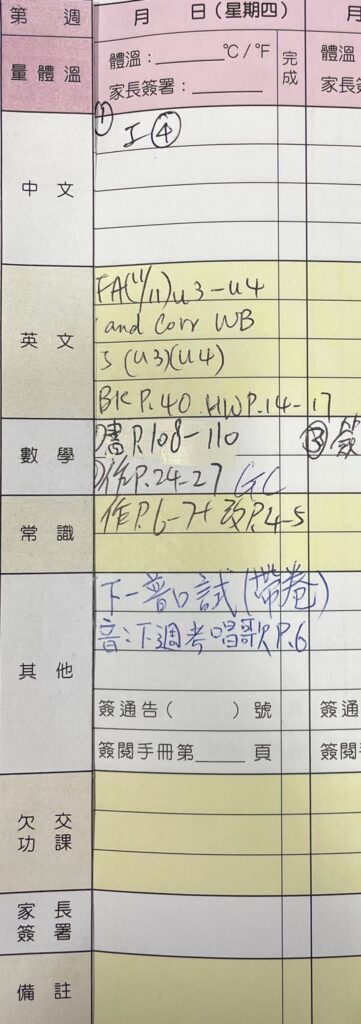 第 週
月 日(星期四)
月
量體溫
體溫:______℃/℉
家長簽署:______
完成
體溫
家長簽
中文
① 工④
英文
FA(11/11)u3-u4
and Corr WB
工(u3)(u4)
BK P.40. HW P.14-17
數學
書P.108-110
③簽
作P.24-27 GC
常識
作P.6-7+改P.4-5
其他
下一普口試(帶卷)
音:下週考唱歌P.6
簽通告( )號
簽通
簽閱手冊第____頁
簽閱
欠交功課
家長簽署
備註